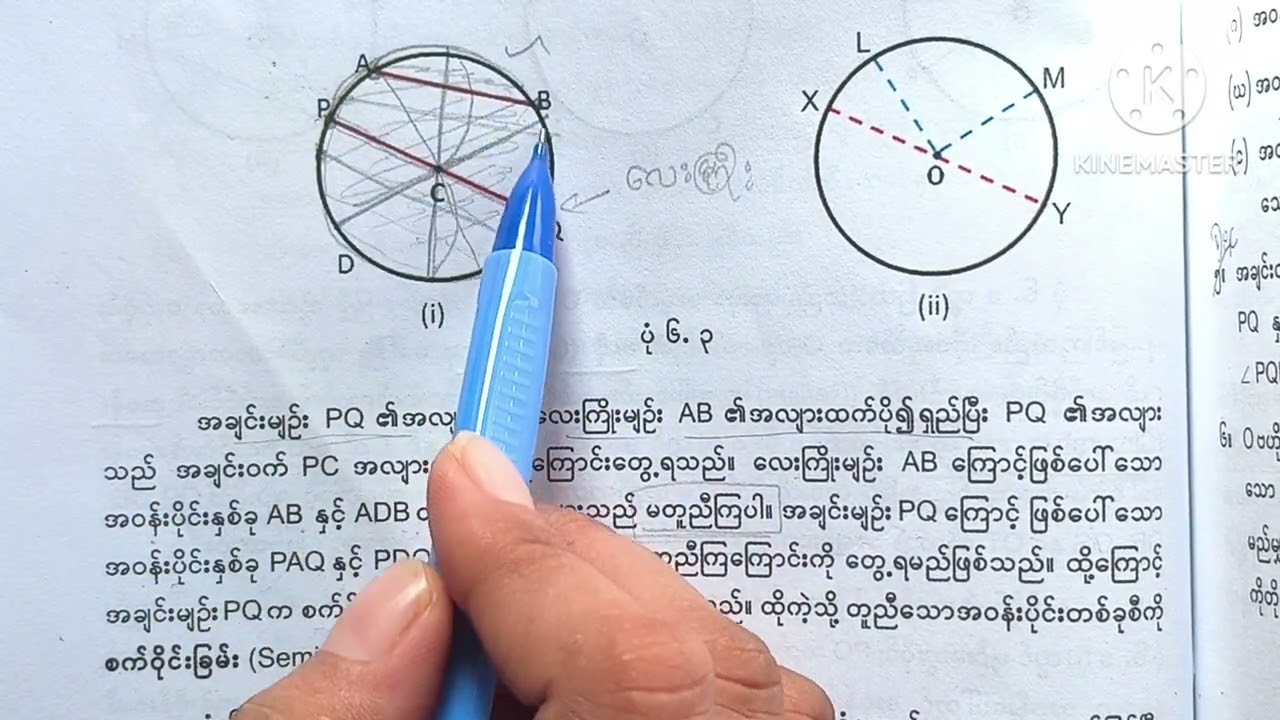 A
B
P
C
D
(i)
လေးကြိုး
L
M
X
O
Y
(ii)
KINEMASTER
ပုံ ၆. ၃
အချင်းမျဉ်း PQ ၏အလျ လေးကြိုးမျဉ်း AB ၏အလျားထက်ပို၍ရှည်ပြီး PQ ၏အလျား
သည် အချင်းဝက် PC အလျား ကြောင်းတွေ့ရသည်။ လေးကြိုးမျဉ်း AB ကြောင့်ဖြစ်ပေါ်သော
အဝန်းပိုင်းနှစ်ခု AB နှင့် ADB သည် မတူညီကြပါ။ အချင်းမျဉ်း PQ ကြောင့် ဖြစ်ပေါ်သော
အဝန်းပိုင်းနှစ်ခု PAQ နှင့် PDQ တူညီကြကြောင်းကို တွေ့ရမည်ဖြစ်သည်။ ထို့ကြောင့်
အချင်းမျဉ်း PQ က စက် သည်။ ထိုကဲ့သို့ တူညီသောအဝန်းပိုင်းတစ်ခုစီကို
စက်ဝိုင်းခြမ်း (Semi
(ဃ)
(င)
၅။ အချင်း
PQ
∠PQ
၆။ O ဗဟို
သော